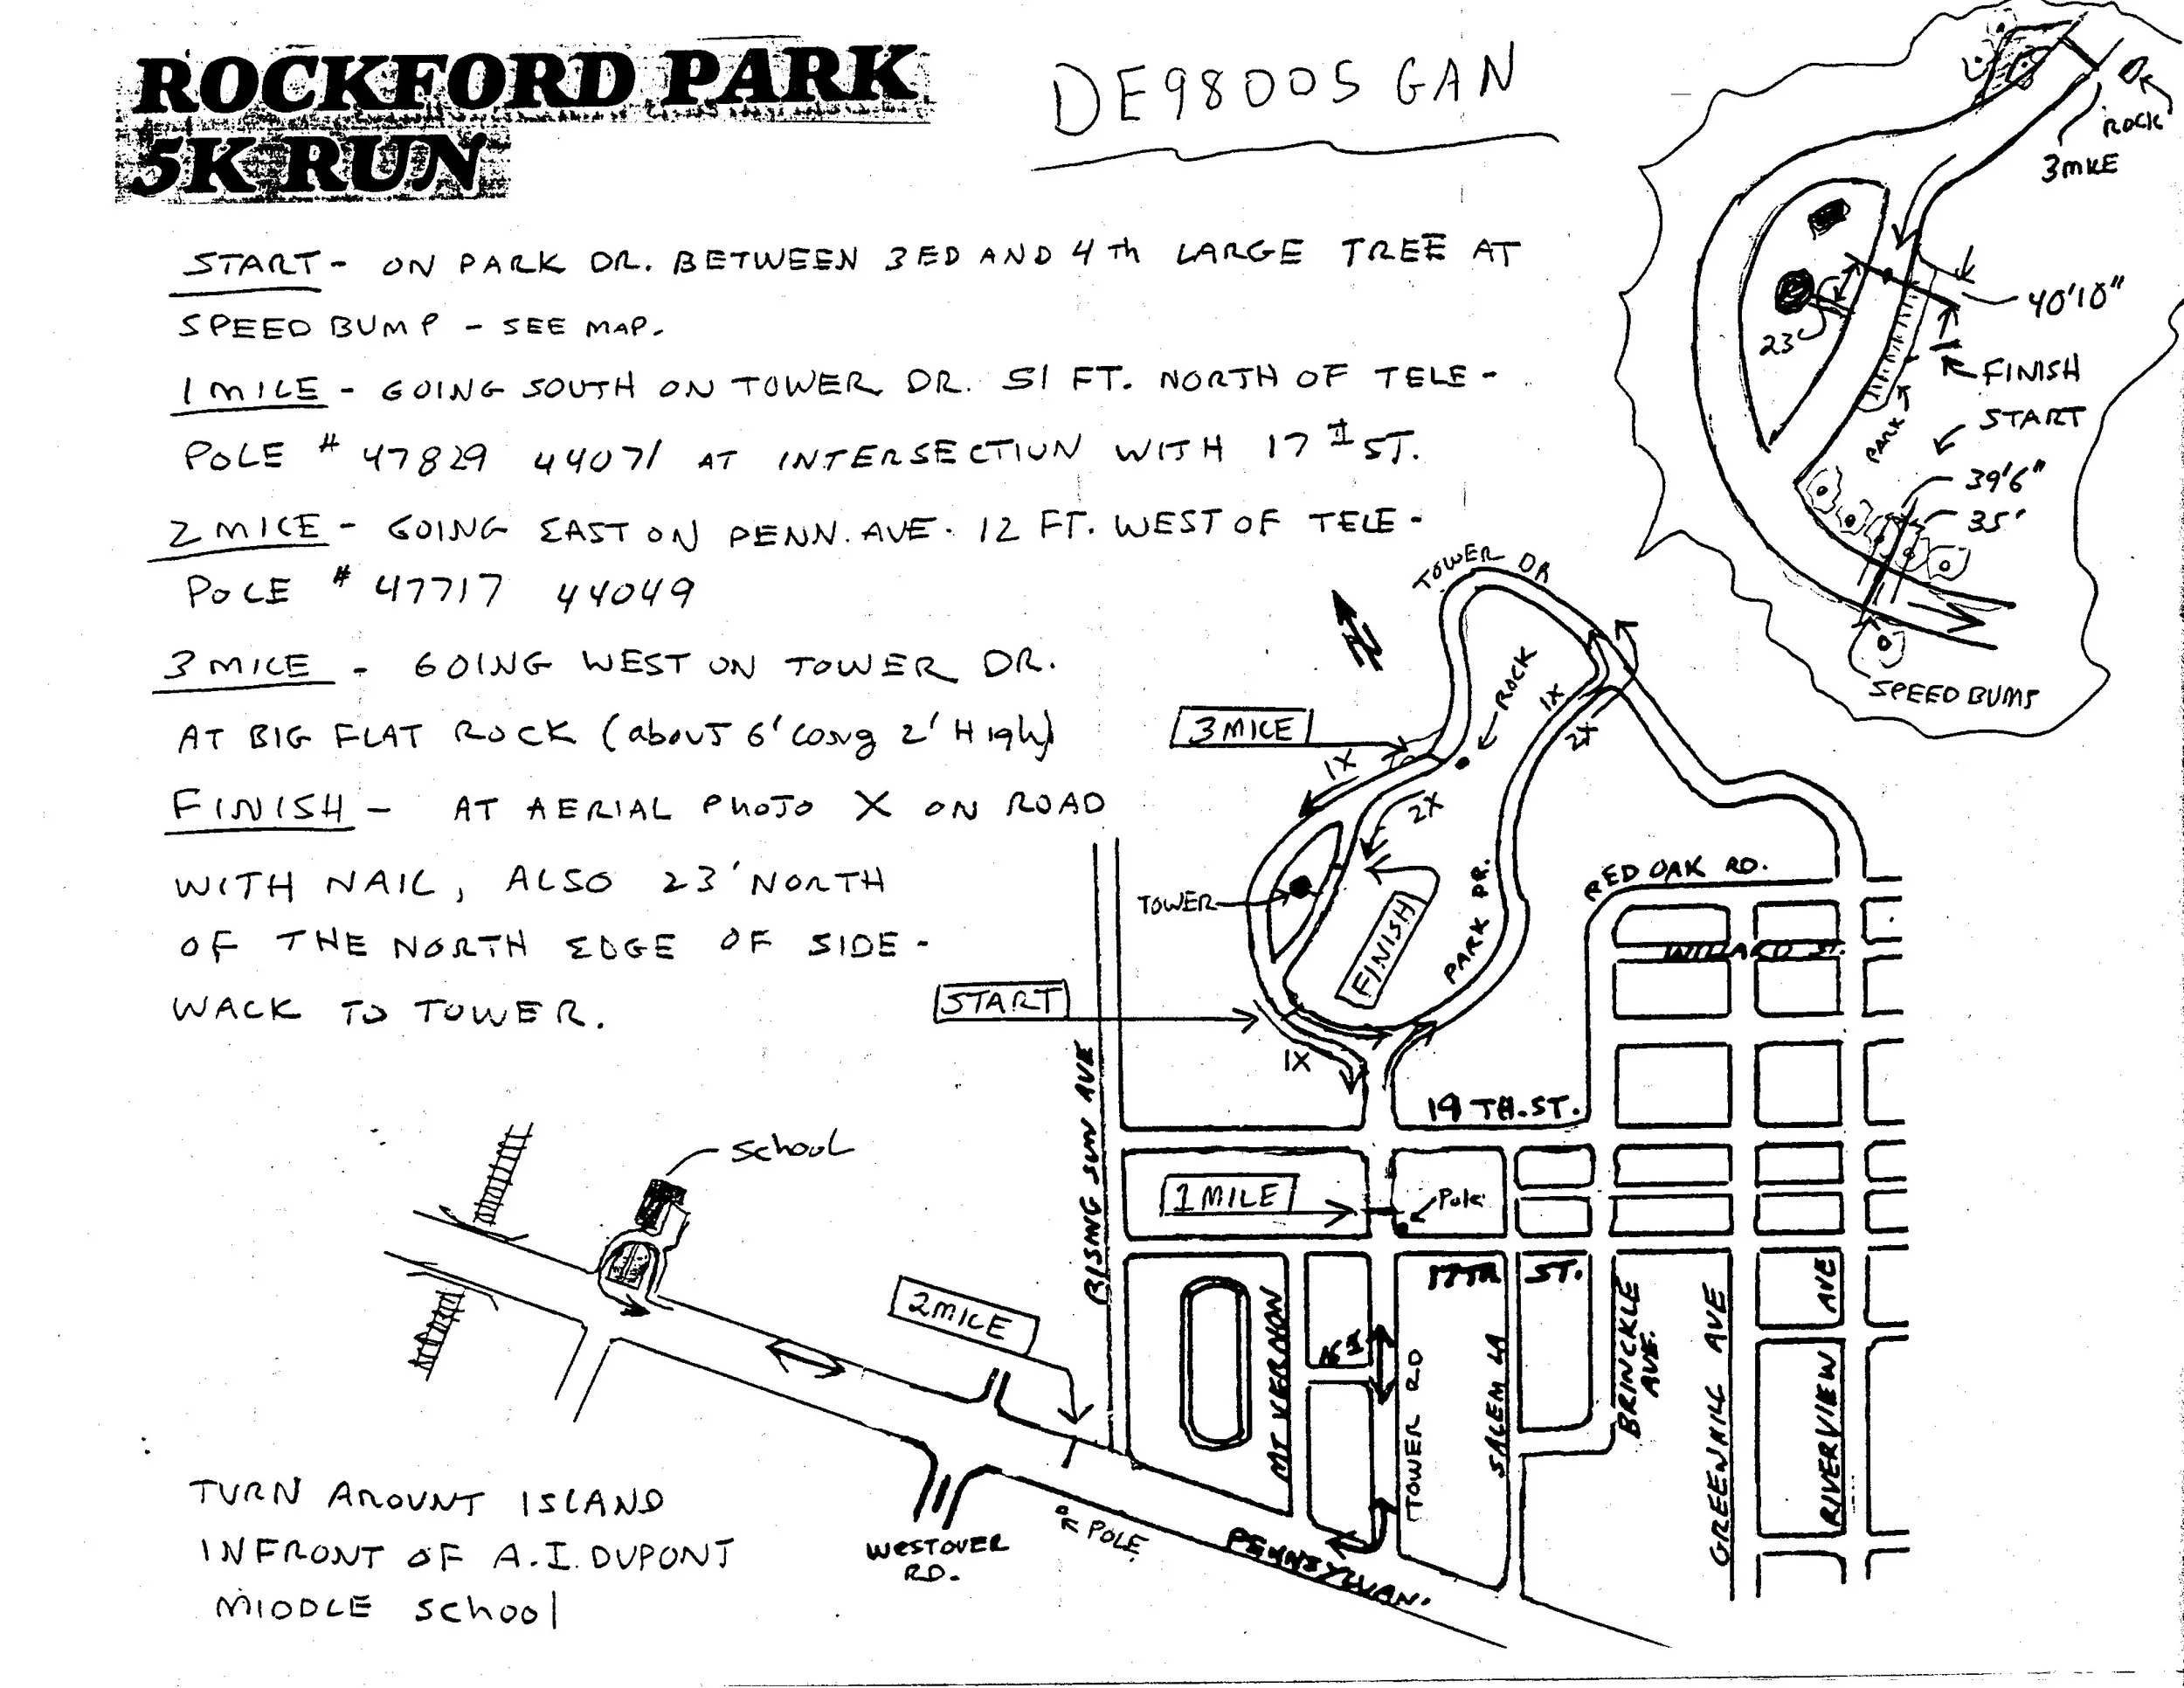 ROCKFORD PARK
5K RUN
DE98005 GAN
START - ON PARK DR. BETWEEN 3ED AND 4th LARGE TREE AT
SPEED BUMP - SEE MAP.
1 MILE - GOING SOUTH ON TOWER DR. 51 FT. NORTH OF TELE-
POLE # 47829 44071 AT INTERSECTION WITH 17th ST.
2 MILE - GOING EAST ON PENN. AVE. 12 FT. WEST OF TELE-
POLE # 47717 44049
3 MILE - GOING WEST ON TOWER DR.
AT BIG FLAT ROCK (about 6' Long 2' High)
FINISH - AT AERIAL PHOTO X ON ROAD
WITH NAIL, ALSO 23' NORTH
OF THE NORTH EDGE OF SIDE-
WALK TO TOWER.
ROCK
3 MILE
40'10"
23'
FINISH
PARK
START
39'6"
35'
SPEED BUMP
TOWER DR
N
ROCK
1X
2X
3 MILE
1X
2X
TOWER
FINISH
PARK DR.
RED OAK RD.
WILLARD ST.
START
1X
RISING SUN AVE
19 TH. ST.
1 MILE
Pole
17TH ST.
school
2 MILE
MT VERNON
16th
TOWER RD
SALEM LA
BRINCKLE
AVE.
GREENHILL AVE
RIVERVIEW AVE
WESTOVER
RD.
POLE
PENNSYLVAN.
TURN AROUNT ISLAND
INFRONT OF A.I. DUPONT
MIDDLE SCHOOL